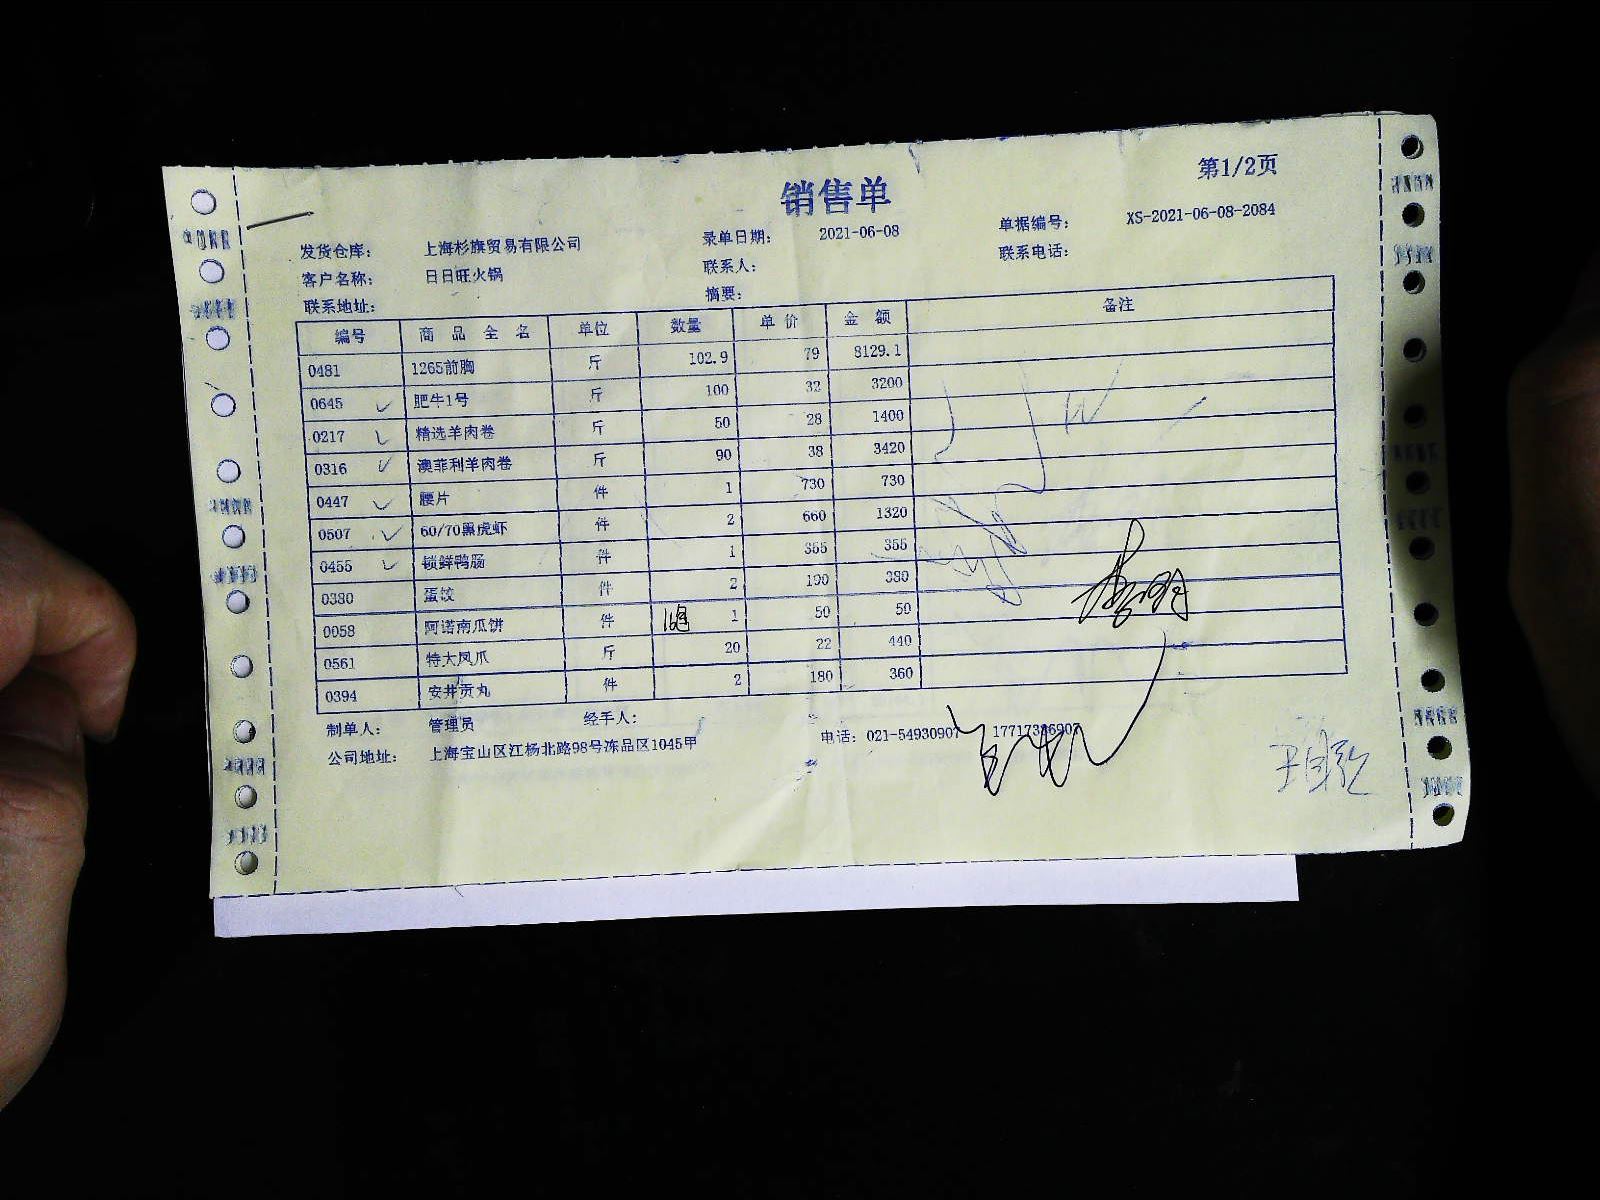 第1/2页
销售单
发货仓库: 上海杉旗贸易有限公司 录单日期: 2021-06-08 单据编号: XS-2021-06-08-2084
客户名称: 日日旺火锅 联系人: 联系电话:
联系地址: 摘要:
编号 商品全名 单位 数量 单价 金额 备注
0481 1265前胸 斤 102.9 79 8129.1
0645 肥牛1号 斤 100 32 3200
0217 精选羊肉卷 斤 50 28 1400
0316 澳菲利羊肉卷 斤 90 38 3420
0447 腰片 件 1 730 730
0507 60/70黑虎虾 件 2 660 1320
0455 锁鲜鸭肠 件 1 355 355
0380 蛋饺 件 2 190 380
0058 阿诺南瓜饼 件 1 50 50
0561 特大凤爪 斤 20 22 440
0394 安井贡丸 件 2 180 360
制单人: 管理员 经手人:
公司地址: 上海宝山区江杨北路98号冻品区1045甲 电话: 021-54930907 17717386907